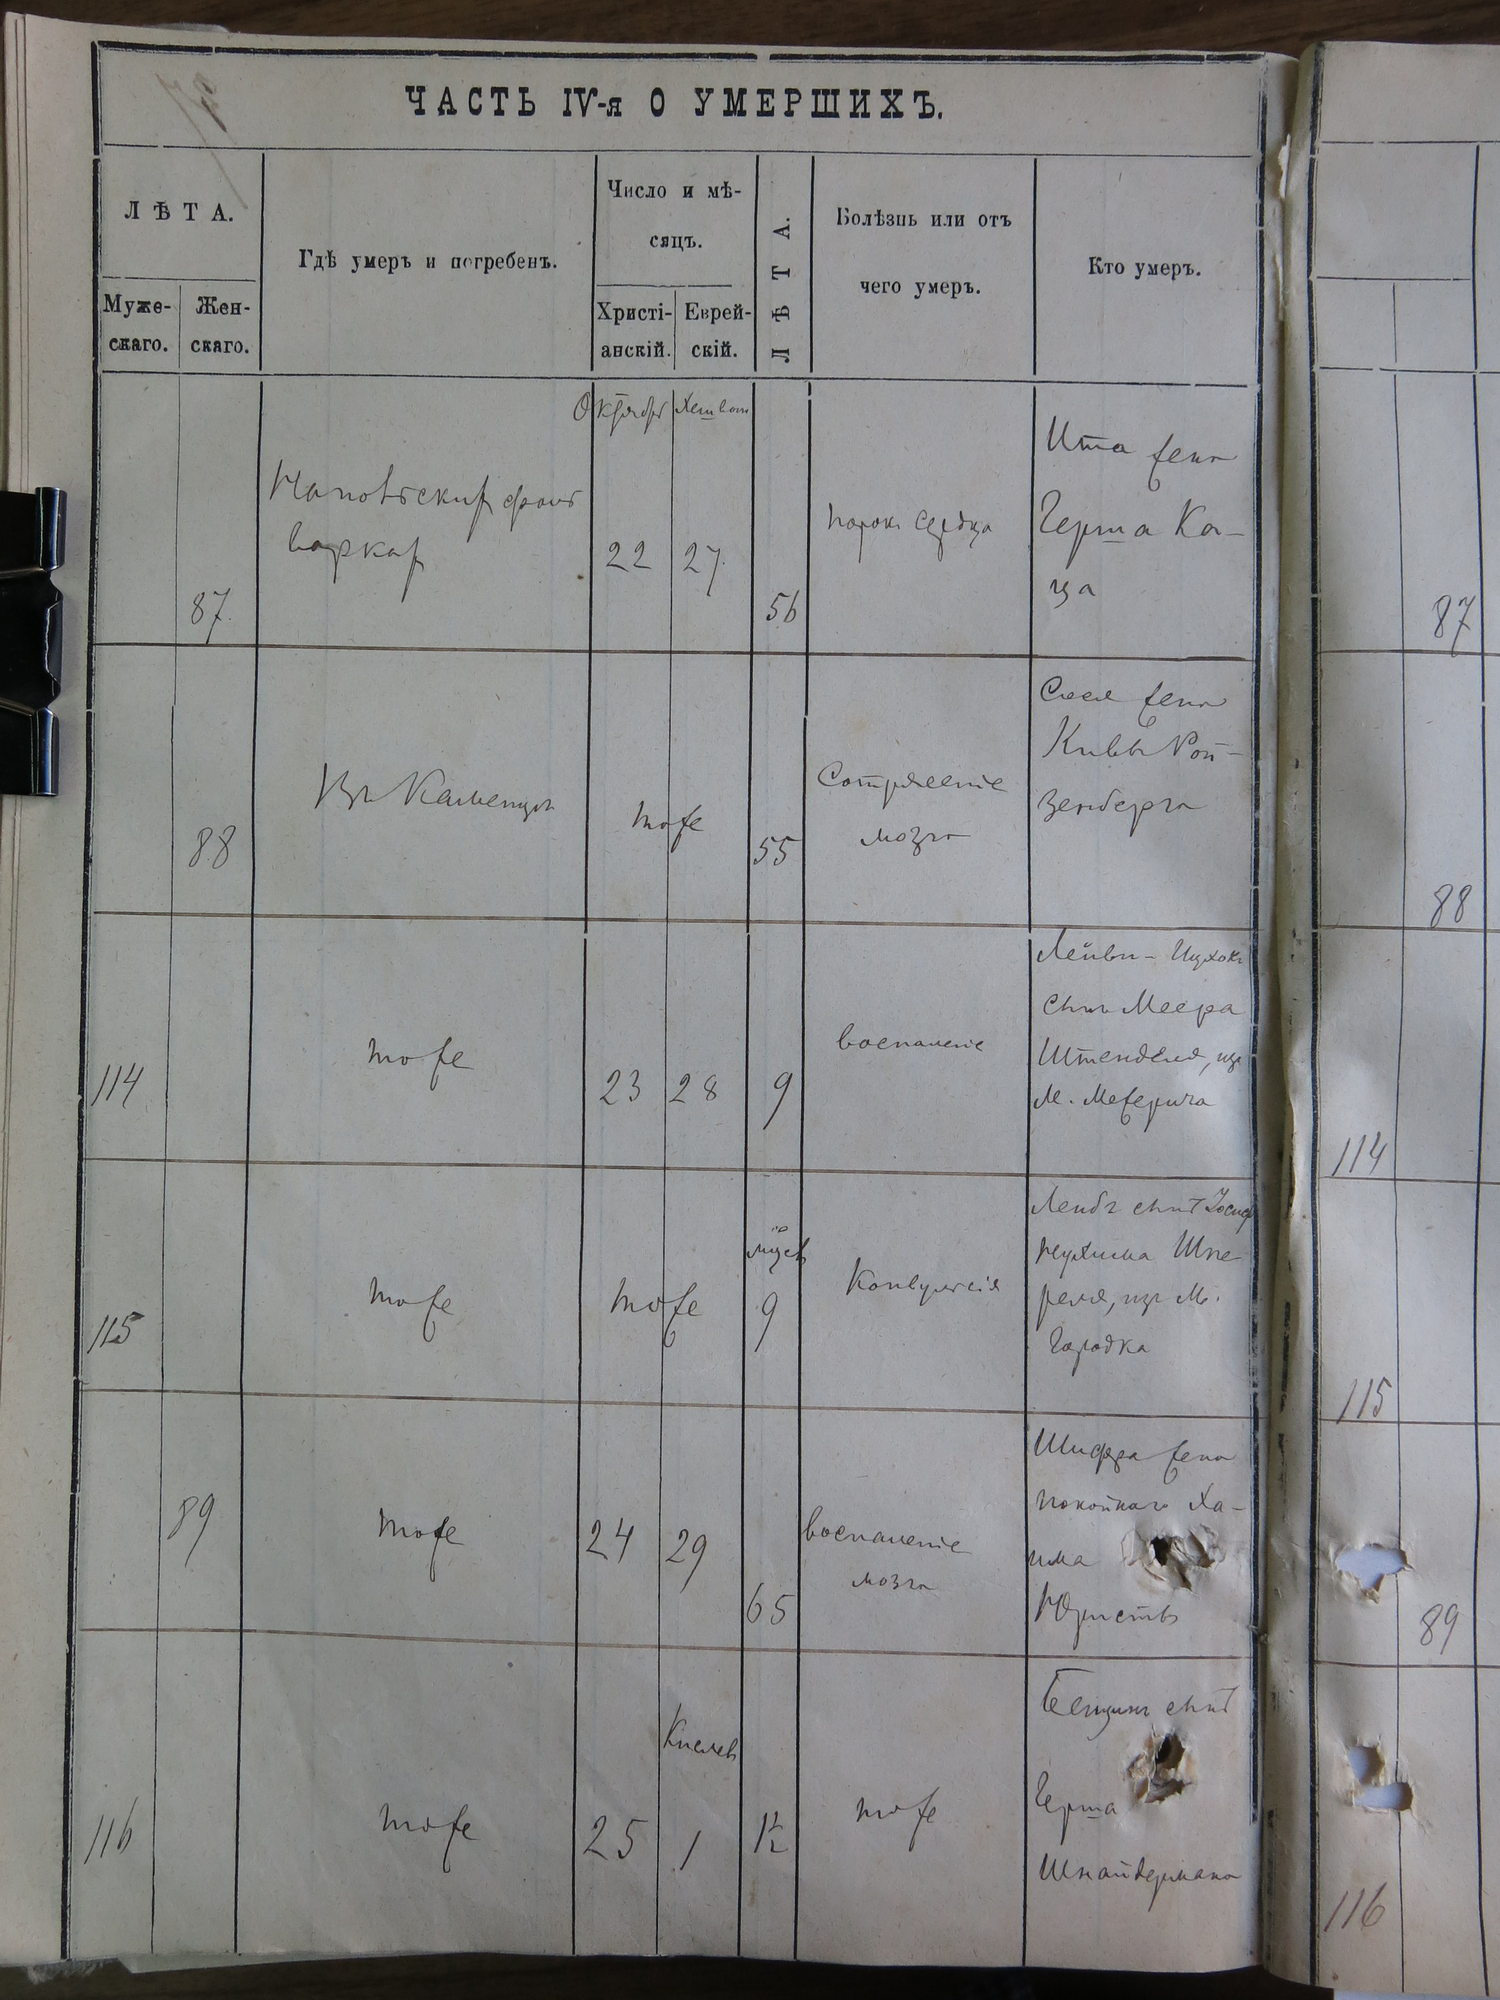 ЧАСТЬ IV-я О УМЕРШИХЪ.
ЛѢТА.
Муже-
скаго.
Жен-
скаго.
Гдѣ умеръ и погребенъ.
Число и мѣ-
сяцъ.
Христі-
анскій.
Еврей-
скій.
ЛѢТА.
Болѣзнь или отъ
чего умеръ.
Кто умеръ.
87
фоль
варках
Октября
22
Хешван
27
56
порокъ сердца
Ита жена
Герша Ка-
ца
87
88
Въ Каменцѣ
тоже
55
Сотрясеніе
мозга
жена
Кивы Рой-
зенберга
88
114
тоже
23
28
9
воспаленіе
Лейви-Ицхокъ
сынъ Меера
Штенделя, изъ
м. Межерича
114
115
тоже
тоже
мѣсяц
9
Конвульсія
Лейбъ сынъ Іосифъ
нухима Шпе-
реля, изъ м.
Городка
115
89
тоже
24
29
65
воспаленіе
мозга
Шифра жена
покойнаго Ха-
има
Юристъ
89
116
тоже
25
Кислев
1
1½
тоже
Бенціонъ сынъ
Герша
Шнайдермана
116